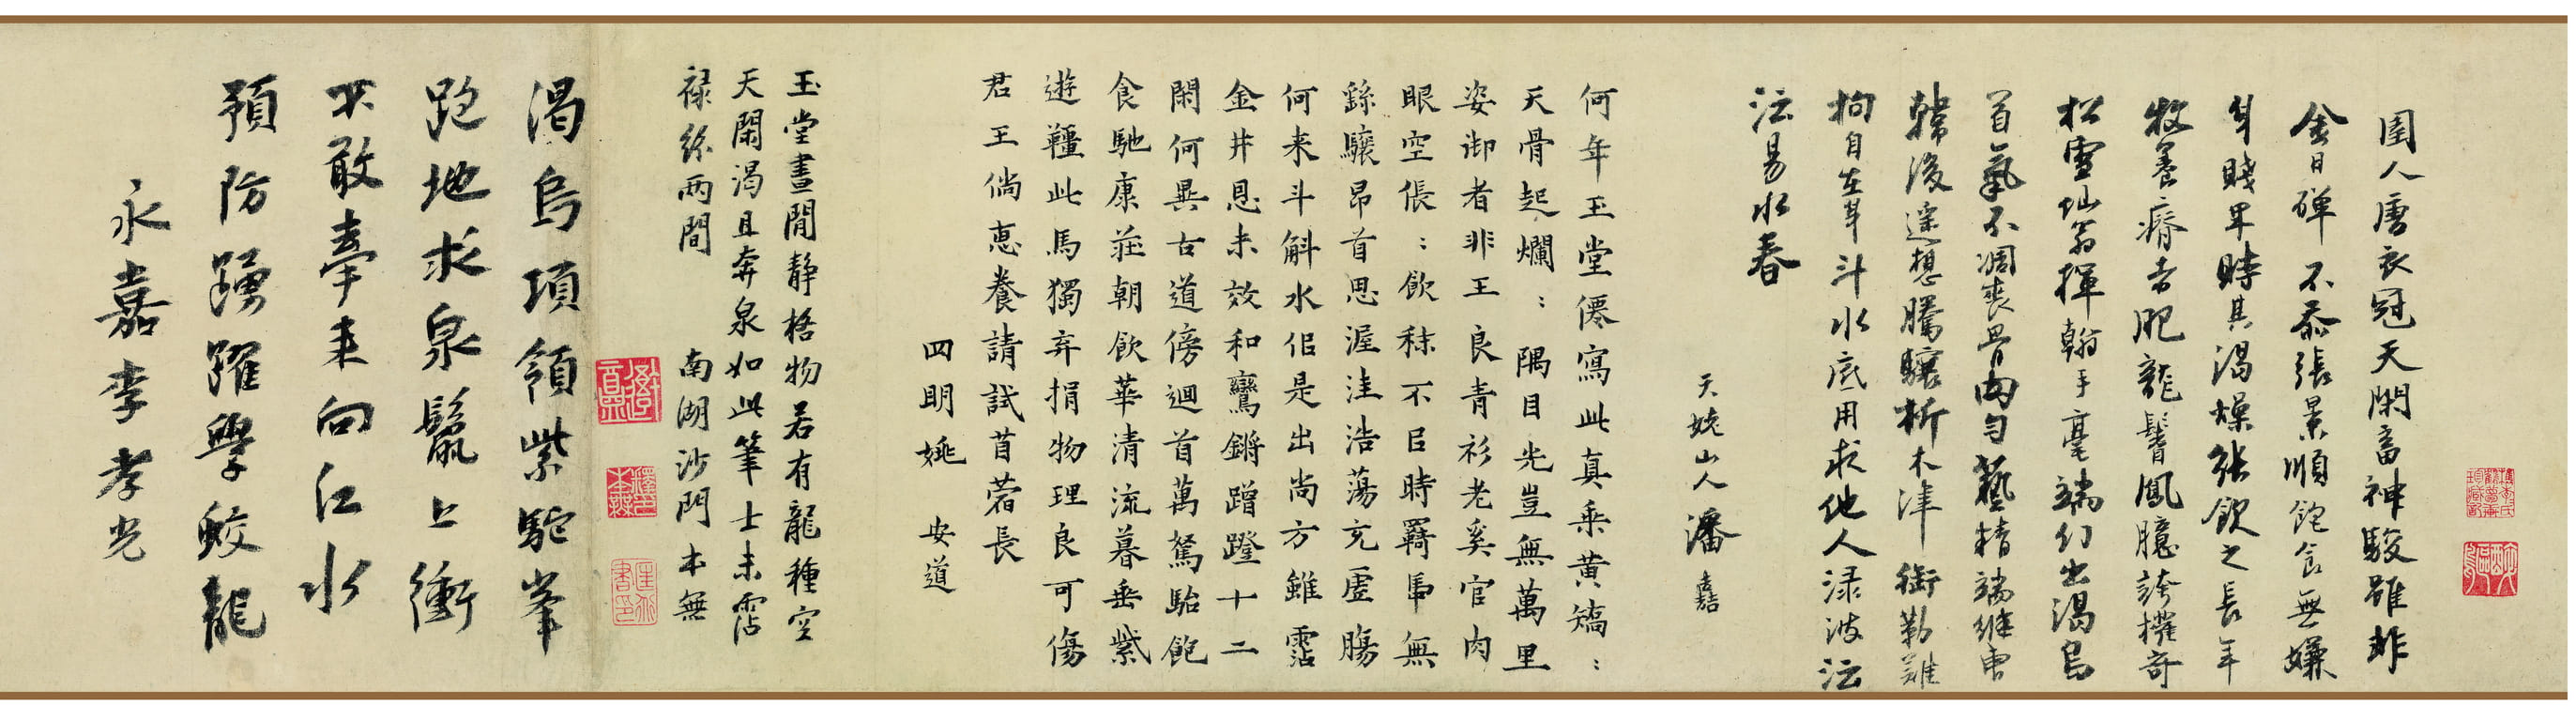 圉人唐衣冠天閑畜神駿雖非
金日磾不忝張景順飽食無嫌
身賤卑時其渴燥能飲之長年
牧養瘠者肥龍鬐鳳臆誇權奇
松雪仙翁揮翰手毫端幻出渴烏
首氣不凋喪骨肉勻藝精端繼東
韓後遙想騰驤析木津銜勒難
拘自在身斗水底用求他人淥波沄
沄易水春
天姥山人潘嘉
何年玉堂僊寫此真乘黃矯〻
天骨起爛〻隅目光豈無萬里
姿御者非王良青衫老奚官肉
眼空倀〻飲秣不以時羇馽無
繇驤昂首思渥洼浩蕩充虛腸
何来斗斛水佀是出尚方雖霑
金井恩未效和鸞鏘蹭蹬十二
閑何異古道傍迴首萬駑駘飽
食馳康莊朝飲華清流暮垂紫
遊韁此馬獨弃捐物理良可傷
君王倘惠養請試苜蓿長
四明姚安道
玉堂晝閒静格物若有龍種空
天閑渴且奔泉如此筆士未霑
禄絲兩間 南湖沙門本無
渴烏項領紫駝峯
跑地求泉鬛上衝
不敢牽来向江水
預防踴躍學蛟龍
永嘉李孝光